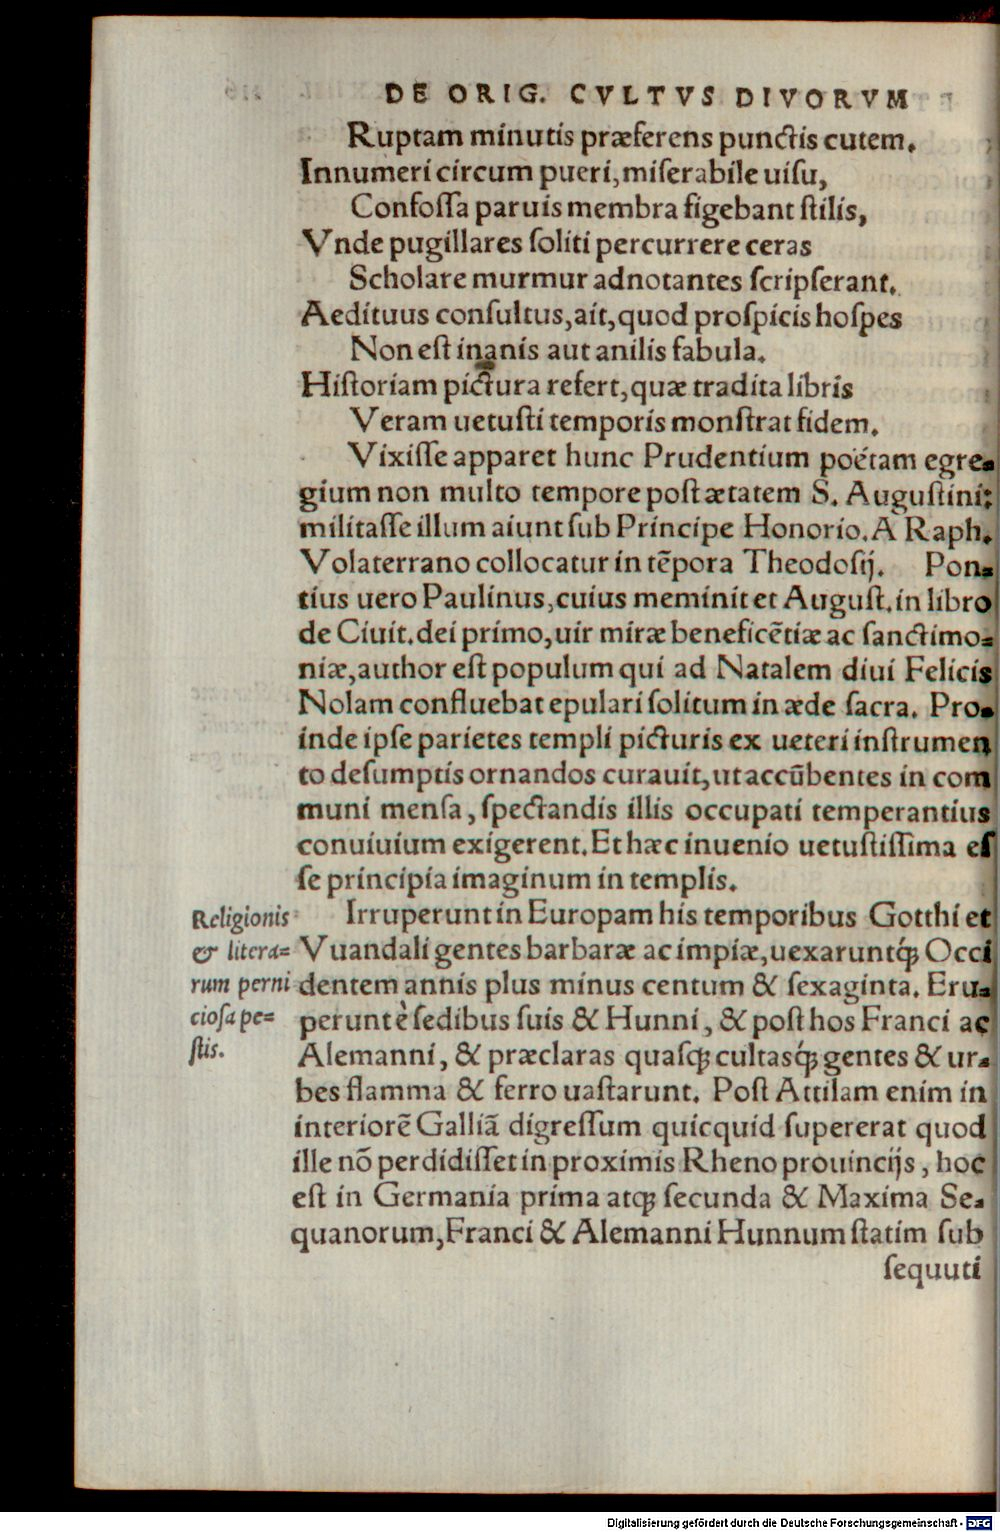 DE ORIG. CVLTVS DIVORVM
Ruptam minutis præferens punctis cutem.
Innumeri circum pueri, miserabile uisu,
Confossa paruis membra figebant stilis,
Vnde pugillares soliti percurrere ceras
Scholare murmur adnotantes scripserant.
Aedituus consultus, ait, quod prospicis hospes
Non est inanis aut anilis fabula.
Historiam pictura refert, quæ tradita libris
Veram uetusti temporis monstrat fidem.
Vixisse apparet hunc Prudentium poëtam egre-
gium non multo tempore post ætatem S. Augustini:
militasse illum aiunt sub Principe Honorio. A Raph.
Volaterrano collocatur in tẽpora Theodosij. Pon-
tius uero Paulinus, cuius meminit et August. in libro
de Ciuit. dei primo, uir miræ beneficẽtiæ ac sanctimo-
niæ, author est populum qui ad Natalem diui Felicis
Nolam confluebat epulari solitum in æde sacra. Pro-
inde ipse parietes templi picturis ex ueteri instrumen
to desumptis ornandos curauit, ut accũbentes in com
muni mensa, spectandis illis occupati temperantius
conuiuium exigerent. Et hæc inuenio uetustissima es
se principia imaginum in templis.
Religionis
& litera-
rum perni
ciosa pe-
stis.
Irruperunt in Europam his temporibus Gotthi et
Vuandali gentes barbaræ ac impiæ, uexaruntq́ꝫ Occi
dentem annis plus minus centum & sexaginta. Eru-
perunt è sedibus suis & Hunni, & post hos Franci ac
Alemanni, & præclaras quasqꝫ cultasq́ꝫ gentes & ur-
bes flamma & ferro uastarunt. Post Attilam enim in
interiorẽ Galliã digressum quicquid supererat quod
ille nõ perdidisset in proximis Rheno prouincijs, hoc
est in Germania prima atqꝫ secunda & Maxima Se-
quanorum, Franci & Alemanni Hunnum statim sub
sequuti
Digitalisierung gefördert durch die Deutsche Forschungsgemeinschaft - DFG